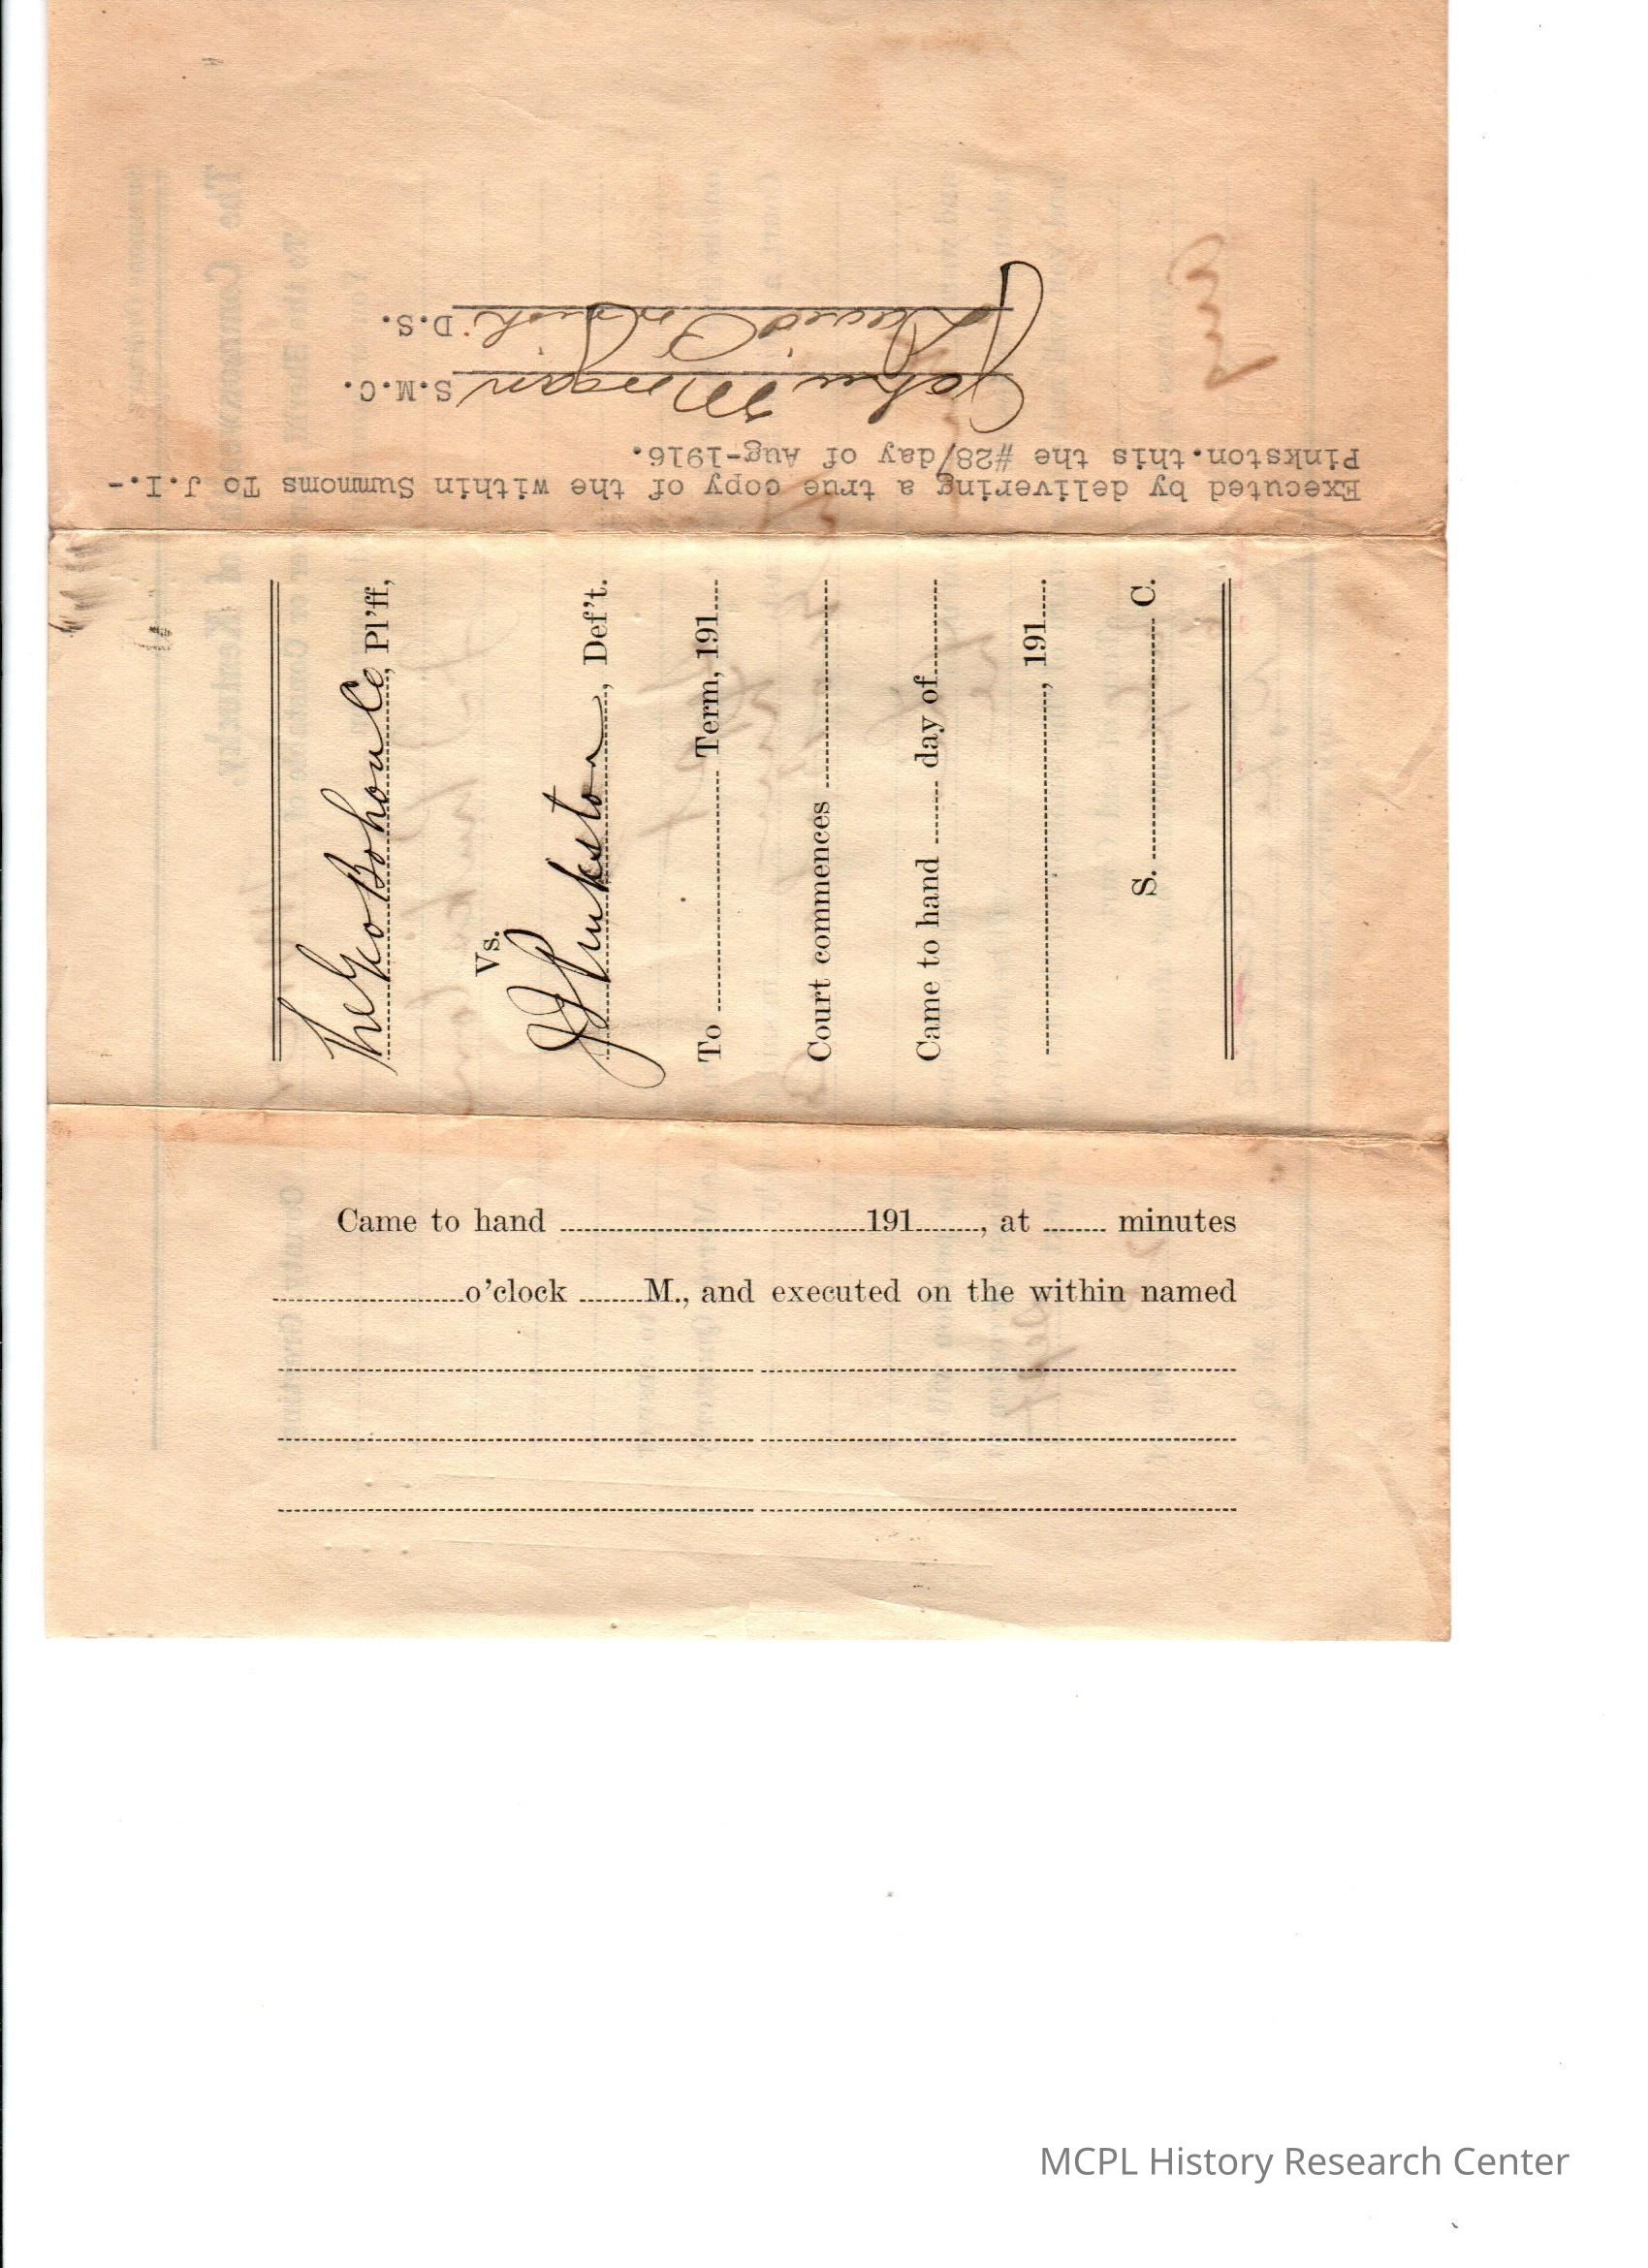 Executed by delivering a true copy of the within Summoms To J.I.-
Pinkston.this the #28/day of Aug-1916.
John Morgan S.M.C.
D.S.
The Geo Bohon Co, Pl'ff,
Vs.
J I Pinkston, Def't.
To Term, 191
Court commences
Came to hand day of
, 191
S. C.
Came to hand 191, at minutes
o'clock M., and executed on the within named
MCPL History Research Center